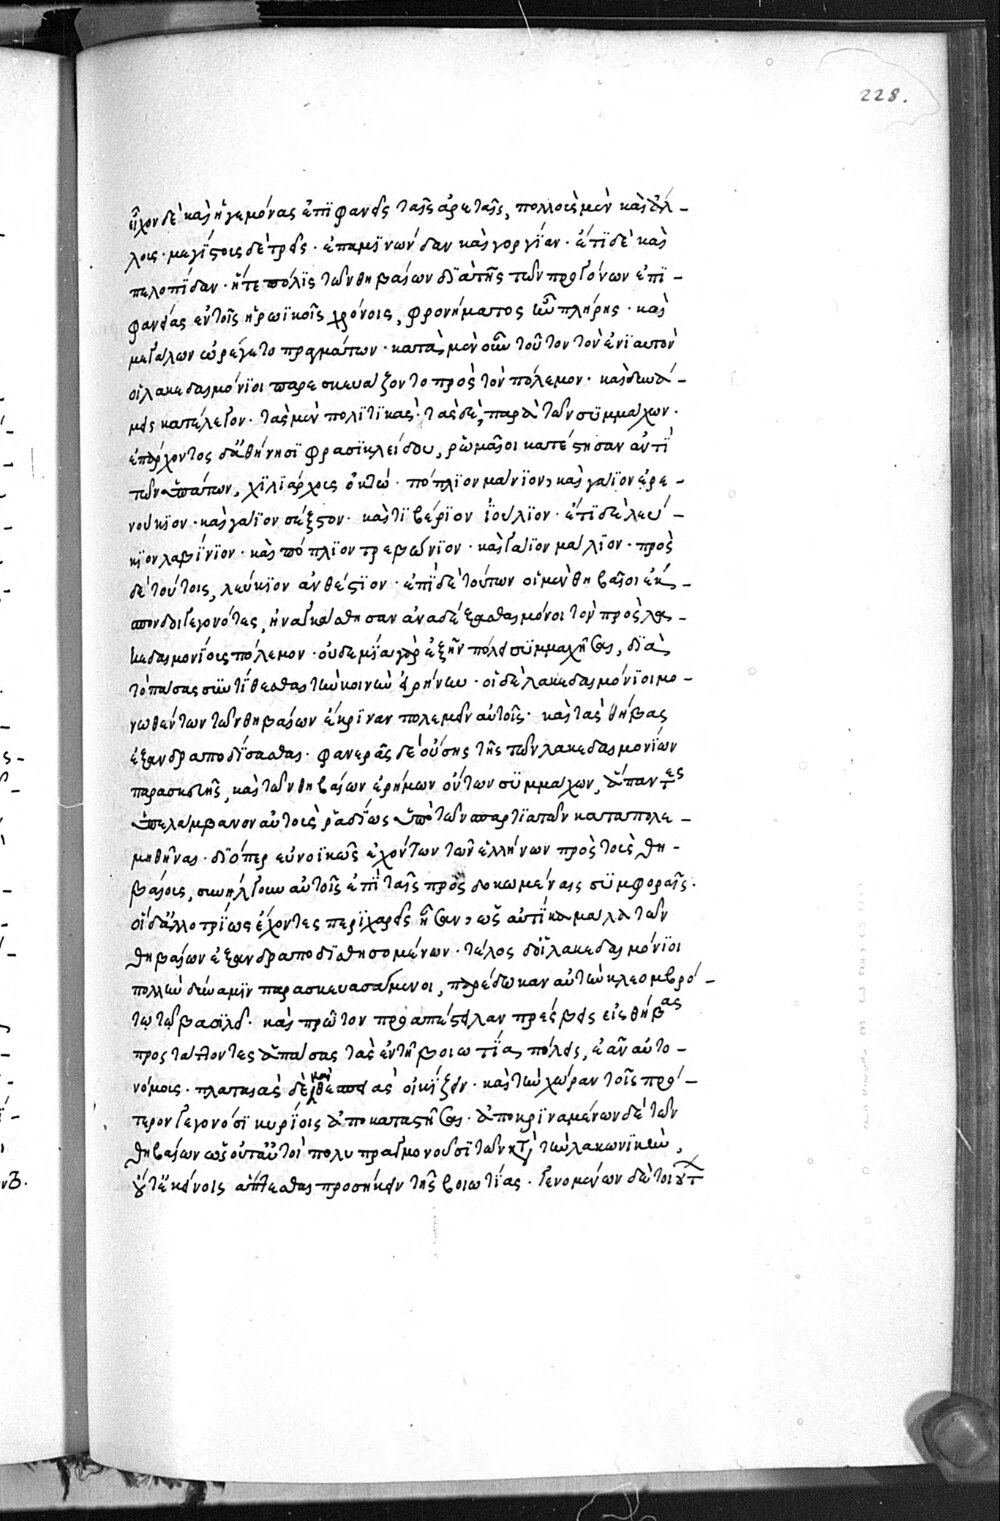 228.
εἶχον δὲ καὶ ἡγεμόνας ἐπϊφανεῖς ταῖς ἀρεταῖς, πολλοὺς μὲν καὶ ἄλ-
λοις· μεγίστοις δὲ τρεῖς· ἐπαμϊνώνδαν καὶ γοργίαν· ἔτϊ δὲ καὶ
πελοπίδαν· ἥτε πόλϊς τῶν θηβαίων δϊὰ τῆς τῶν προγόνων ἐπϊ-
φανείας ἐν τοῖς ἡρωϊκοῖς χρόνοις, φρονήματος ἦν πλήρης· καὶ
μεγάλων ὠρέγετο πραγμάτων· κατὰ μὲν οὖν τοῦτον τὸν ἐνϊαυτὸν
οἱ λακεδαιμόνϊοι παρεσκευάζοντο πρὸς τὸν πόλεμον· καὶ δυνά-
μεις κατέλεγον· τὰς μὲν πολϊτϊκὰς· τὰς δὲ, παρὰ τῶν συμμάχων·
ἐπάρχοντος δ' ἀθήνησϊ φρασϊκλείδου, ῥωμαῖοι κατέστησαν ἀντὶ
τῶν ὑπάτων, χϊλϊάρχοις ὀκτώ· πόπλϊον μάνϊον, καὶ γάϊον ἐρε-
νούκϊον· καὶ γάϊον σέξστον· καὶ τϊβέρϊον ἰούλϊον· ἔτϊ δὲ λεύ-
κϊον λαβίνϊον· καὶ πόπλϊον τρεβώνϊον· καὶ γάϊον μάλϊον· πρὸς
δὲ τούτοις, λεύκϊον ἀνθέστϊον· ἐπὶ δὲ τούτων οἱ μὲν θηβαῖοι ἔκ-
σπονδοι γεγονότες, ἠναγκάσθησαν ἀναδέξασθαι μόνοι τὸν πρὸς λα-
κεδαιμονίοις πόλεμον· οὐδεμϊᾶ γὰρ ἐξῆν πόλει συμμαχῆσαι, δϊὰ
τὸ πάσας συντίθεσθαι τὴν κοινὴν εἰρήνην· οἱ δὲ λακεδαιμόνϊοι μο-
νωθέντων τῶν θηβαίων ἔκρϊναν πολεμεῖν αὐτοῖς· καὶ τὰς θήβας
ἐξανδραποδίσασθαι· φανερᾶς δὲ οὔσης τῆς τῶν λακεδαιμονίων
παρασκευῆς, καὶ τῶν θηβαίων ἐρήμων ὄντων συμμάχων, ἅπαντες
ὑπελάμβανον αὐτοὺς ῥαδΐως ὑπὸ τῶν σπαρτϊατῶν καταπολε-
μηθῆναι· δϊόπερ εὐνοϊκῶς ἐχόντων τῶν ἑλλήνων πρὸς τοὺς θη-
βαίοις, συνήλγουν αὐτοῖς ἐπὶ ταῖς προσδοκωμέναις συμφοραῖς·
οἱ δ' ἀλλοτρίως ἔχοντες περϊχαρεῖς ἦσαν, ὡς αὐτίκα μάλα τῶν
θηβαίων ἐξανδραποδϊσθησομένων· τέλος δ' οἱ λακεδαιμόνϊοι
πολλὴν δύναμϊν παρασκευασάμενοι, παρέδωκαν αὐτὴν κλεομβρό-
τω τῷ βασϊλεῖ· καὶ πρῶτον προαπέστειλαν πρέσβεις εἰς θήβας
προστάττοντες ἁπάσας τὰς ἐν τῆ βοιωτία πόλεις, ἐᾶν αὐτο-
νόμοις· πλαταιὰς δὲ καὶ θεσπιὰς οἰκίζειν· καὶ τὴν χώραν τοῖς πρό-
τερον γεγονόσϊ κυρίοις ἀποκαταστῆσαι· ἀποκρϊναμένων δὲ τῶν
θηβαίων ὡς οὔτ' αὐτοὶ πολυπραγμονοῦσϊ τῶν κτ τὴν λακωνϊκὴν,
οὔτ' ἐκείνοις ἅπτεσθαι προσήκειν τῆς βοιωτίας· γενομένων δὲ τοιούτ